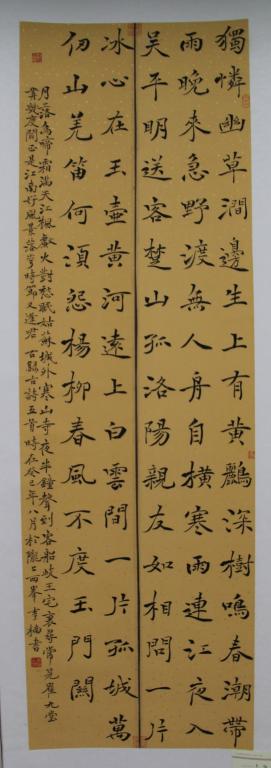 獨憐幽草澗邊生上有黃鸝深樹鳴春潮帶
雨晚來急野渡無人舟自橫寒雨連江夜入
吴平明送客楚山孤洛陽親友如相問一片
冰心在玉壺黄河遠上白雲間一片孤城萬
仞山羌笛何須怨楊柳春風不度玉門關
月落烏啼霜滿天江楓漁火對愁眠姑蘇城外寒山寺夜半鐘聲到客船岐王宅裏尋常見崔九堂
前幾度聞正是江南好風景落花時節又逢君 古詩五首 時在癸巳年八月於隴上西峯 李楠書